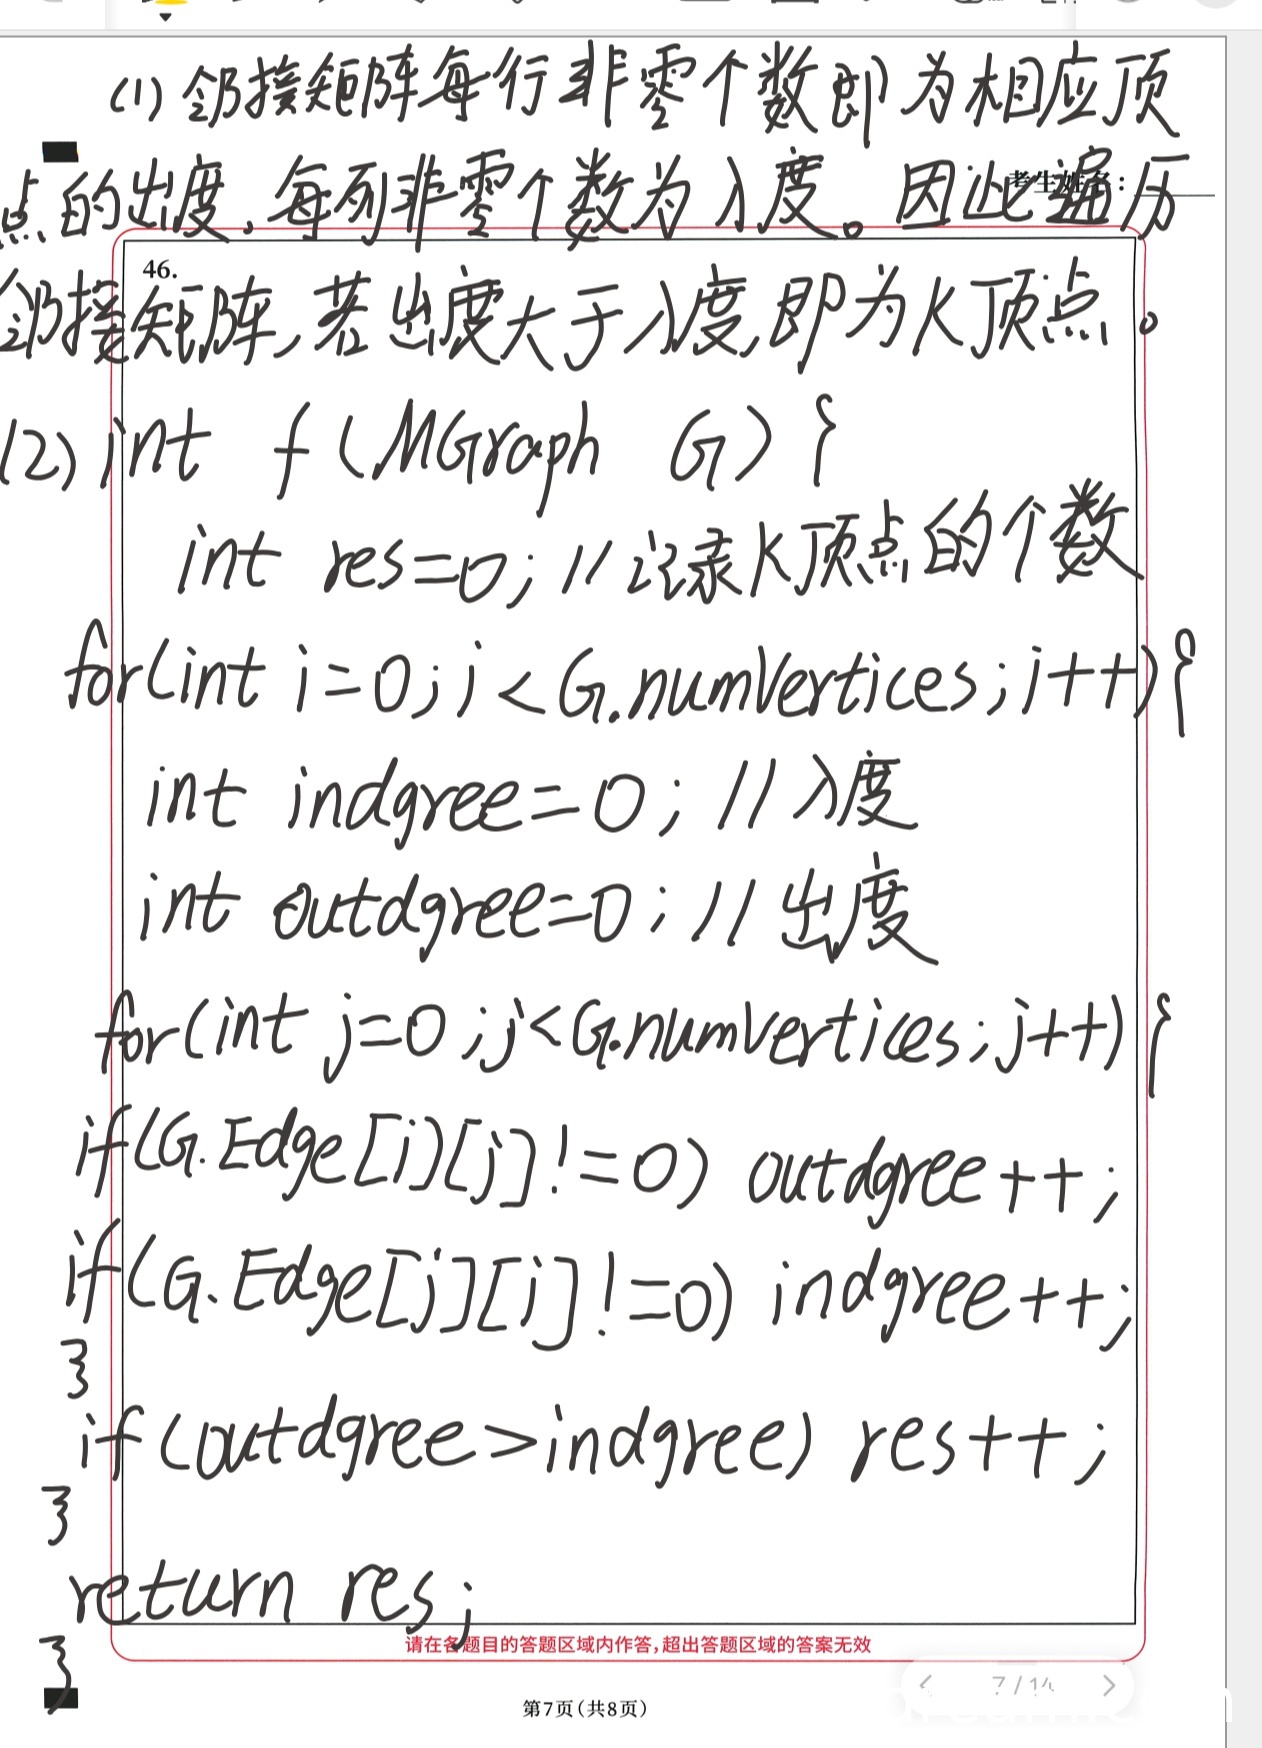 (1) 邻接矩阵每行非零个数即为相应顶
点的出度,每列非零个数为入度。因此遍历
考生姓名:
46.
邻接矩阵,若出度大于入度,即为K顶点。
(2) int f (MGraph G) {
int res=0; // 记录K顶点的个数
for(int i=0;i<G.numVertices;i++){
int indgree=0; // 入度
int outdgree=0; // 出度
for(int j=0;j<G.numVertices;j++) {
if(G.Edge[i][j]!=0) outdgree++;
if(G.Edge[j][i]!=0) indgree++;
}
if(outdgree>indgree) res++;
}
return res;
}
请在各题目的答题区域内作答,超出答题区域的答案无效
7/14
第7页(共8页)